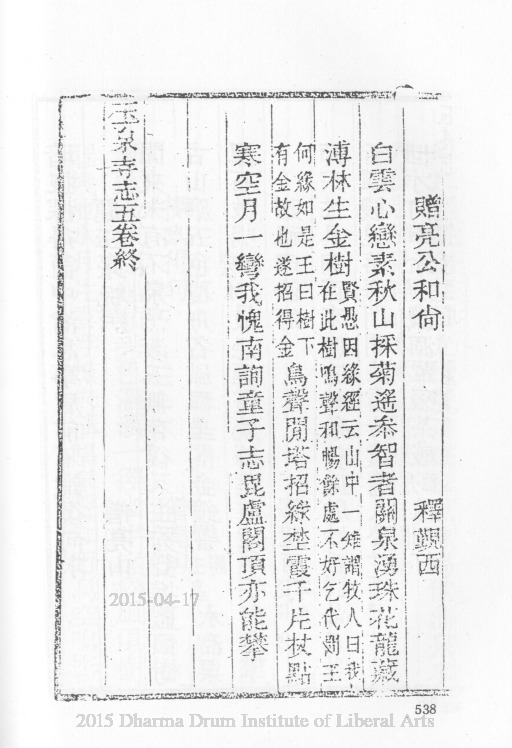 贈亮公和尙　釋觀西
白雲心戀素秋山採菊遙叅智者關泉湧珠花龍藏
溥林生金樹賢愚因緣經云山中一雉謂牧人曰我
在此樹鳴聲和暢餘處不好乞代問王
何緣如是王曰樹下
有金故也遂招得金鳥聲閒塔招緣埜霞千片杖點
寒空月一彎我愧南詢童子志毘盧閣頂亦能攀
玉泉寺志五卷終
2015-04-17
538
2015 Dharma Drum Institute of Liberal Arts